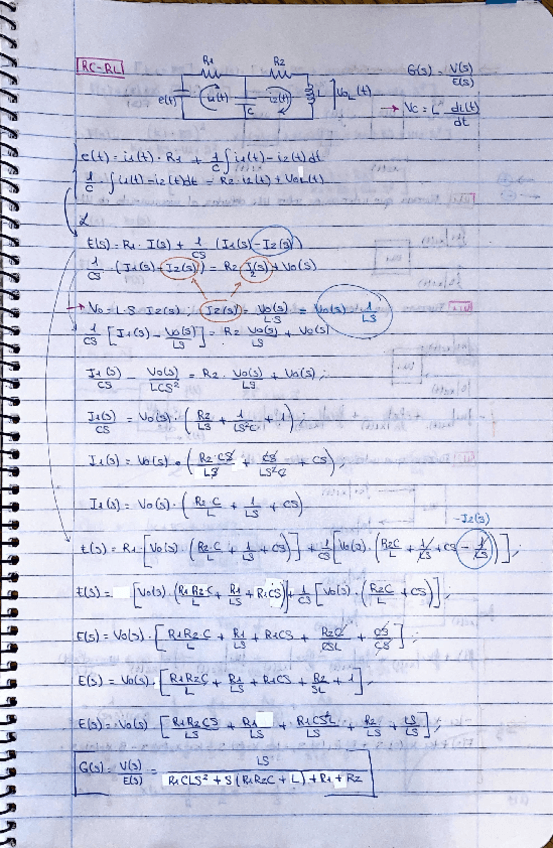 RC-RL
R1 R2
e(t) i1(t) C i2(t) L VoL(t)
G(s) = V(s)/E(s)
→ Vc = L diL(t)/dt
e(t) = i1(t) · R1 + 1/C ∫ i1(t) - i2(t) dt
1/C ∫ i1(t) - i2(t) dt = R2 · i2(t) + VoL(t)
ℒ
E(s) = R1 · I(s) + 1/CS (I1(s) - I2(s))
1/CS · (I1(s) - I2(s)) = R2 I2(s) + Vo(s)
→ Vo = L·S I2(s) ; I2(s) = Vo(s)/LS = Vo(s) · 1/LS
1/CS [I1(s) - Vo(s)/LS] = R2 Vo(s)/LS + Vo(s)
I1(s)/CS - Vo(s)/LCS² = R2 · Vo(s)/LS + Vo(s) ;
I1(s)/CS = Vo(s) · (R2/LS + 1/LS²C + 1) ;
I1(s) = Vo(s) · (R2·CS/LS + CS/LS²C + CS) ;
I1(s) = Vo(s) · (R2·C/L + 1/LS + CS)
-I2(s)
E(s) = R1 · [Vo(s) · (R2·C/L + 1/LS + CS)] + 1/CS [Vo(s) · (R2C/L + 1/LS + CS - 1/LS)] ;
E(s) = [Vo(s) · (R1R2C/L + R1/LS + R1CS)] + 1/CS [Vo(s) · (R2C/L + CS)] ;
E(s) = Vo(s) · [R1R2C/L + R1/LS + R1CS + R2C/CSL + CS/CS] ;
E(s) = Vo(s) · [R1R2C/L + R1/LS + R1CS + R2/SL + 1] ;
E(s) = Vo(s) [R1R2CS/LS + R1/LS + R1CS²L/LS + R2/LS + LS/LS] ;
G(s) = V(s)/E(s) = LS/(R1CLS² + S(R1R2C + L) + R1 + R2)